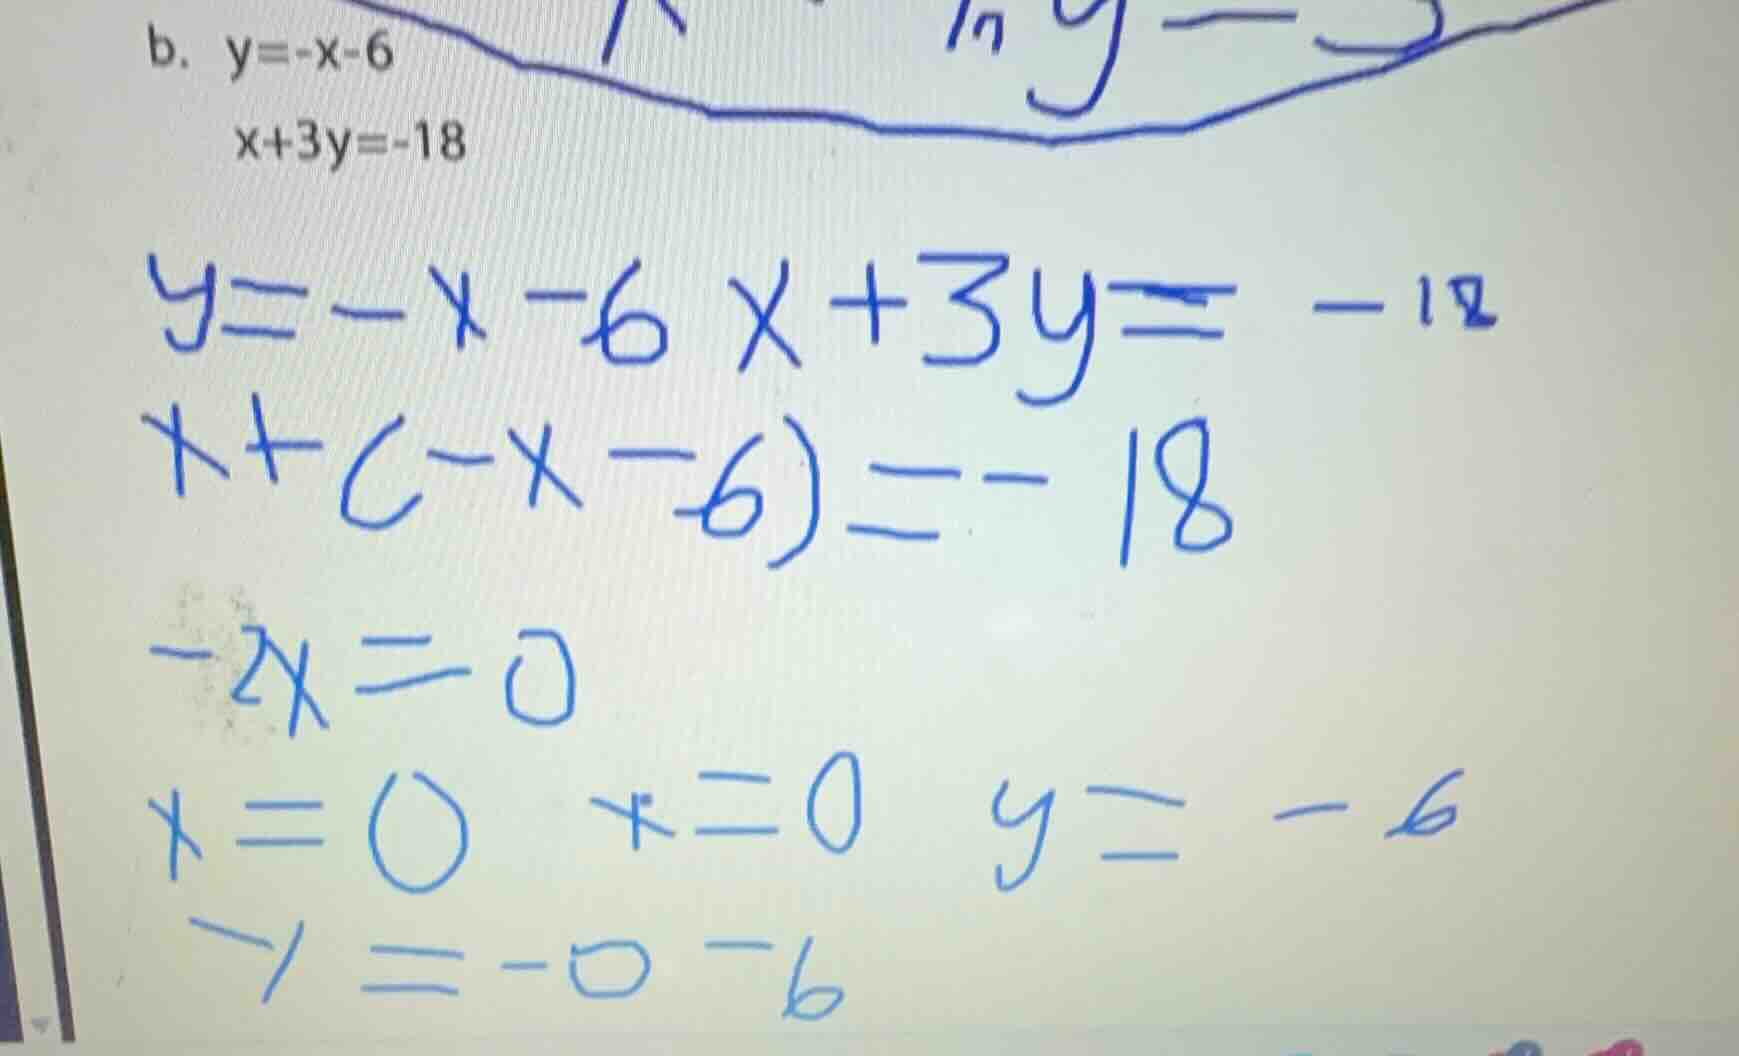 b. y=-x-6
x+3y=-18
y=-x-6 x+3y=-18
x+(-x-6)=-18
-2x=0
x=0 x=0 y=-6
y=-0-6